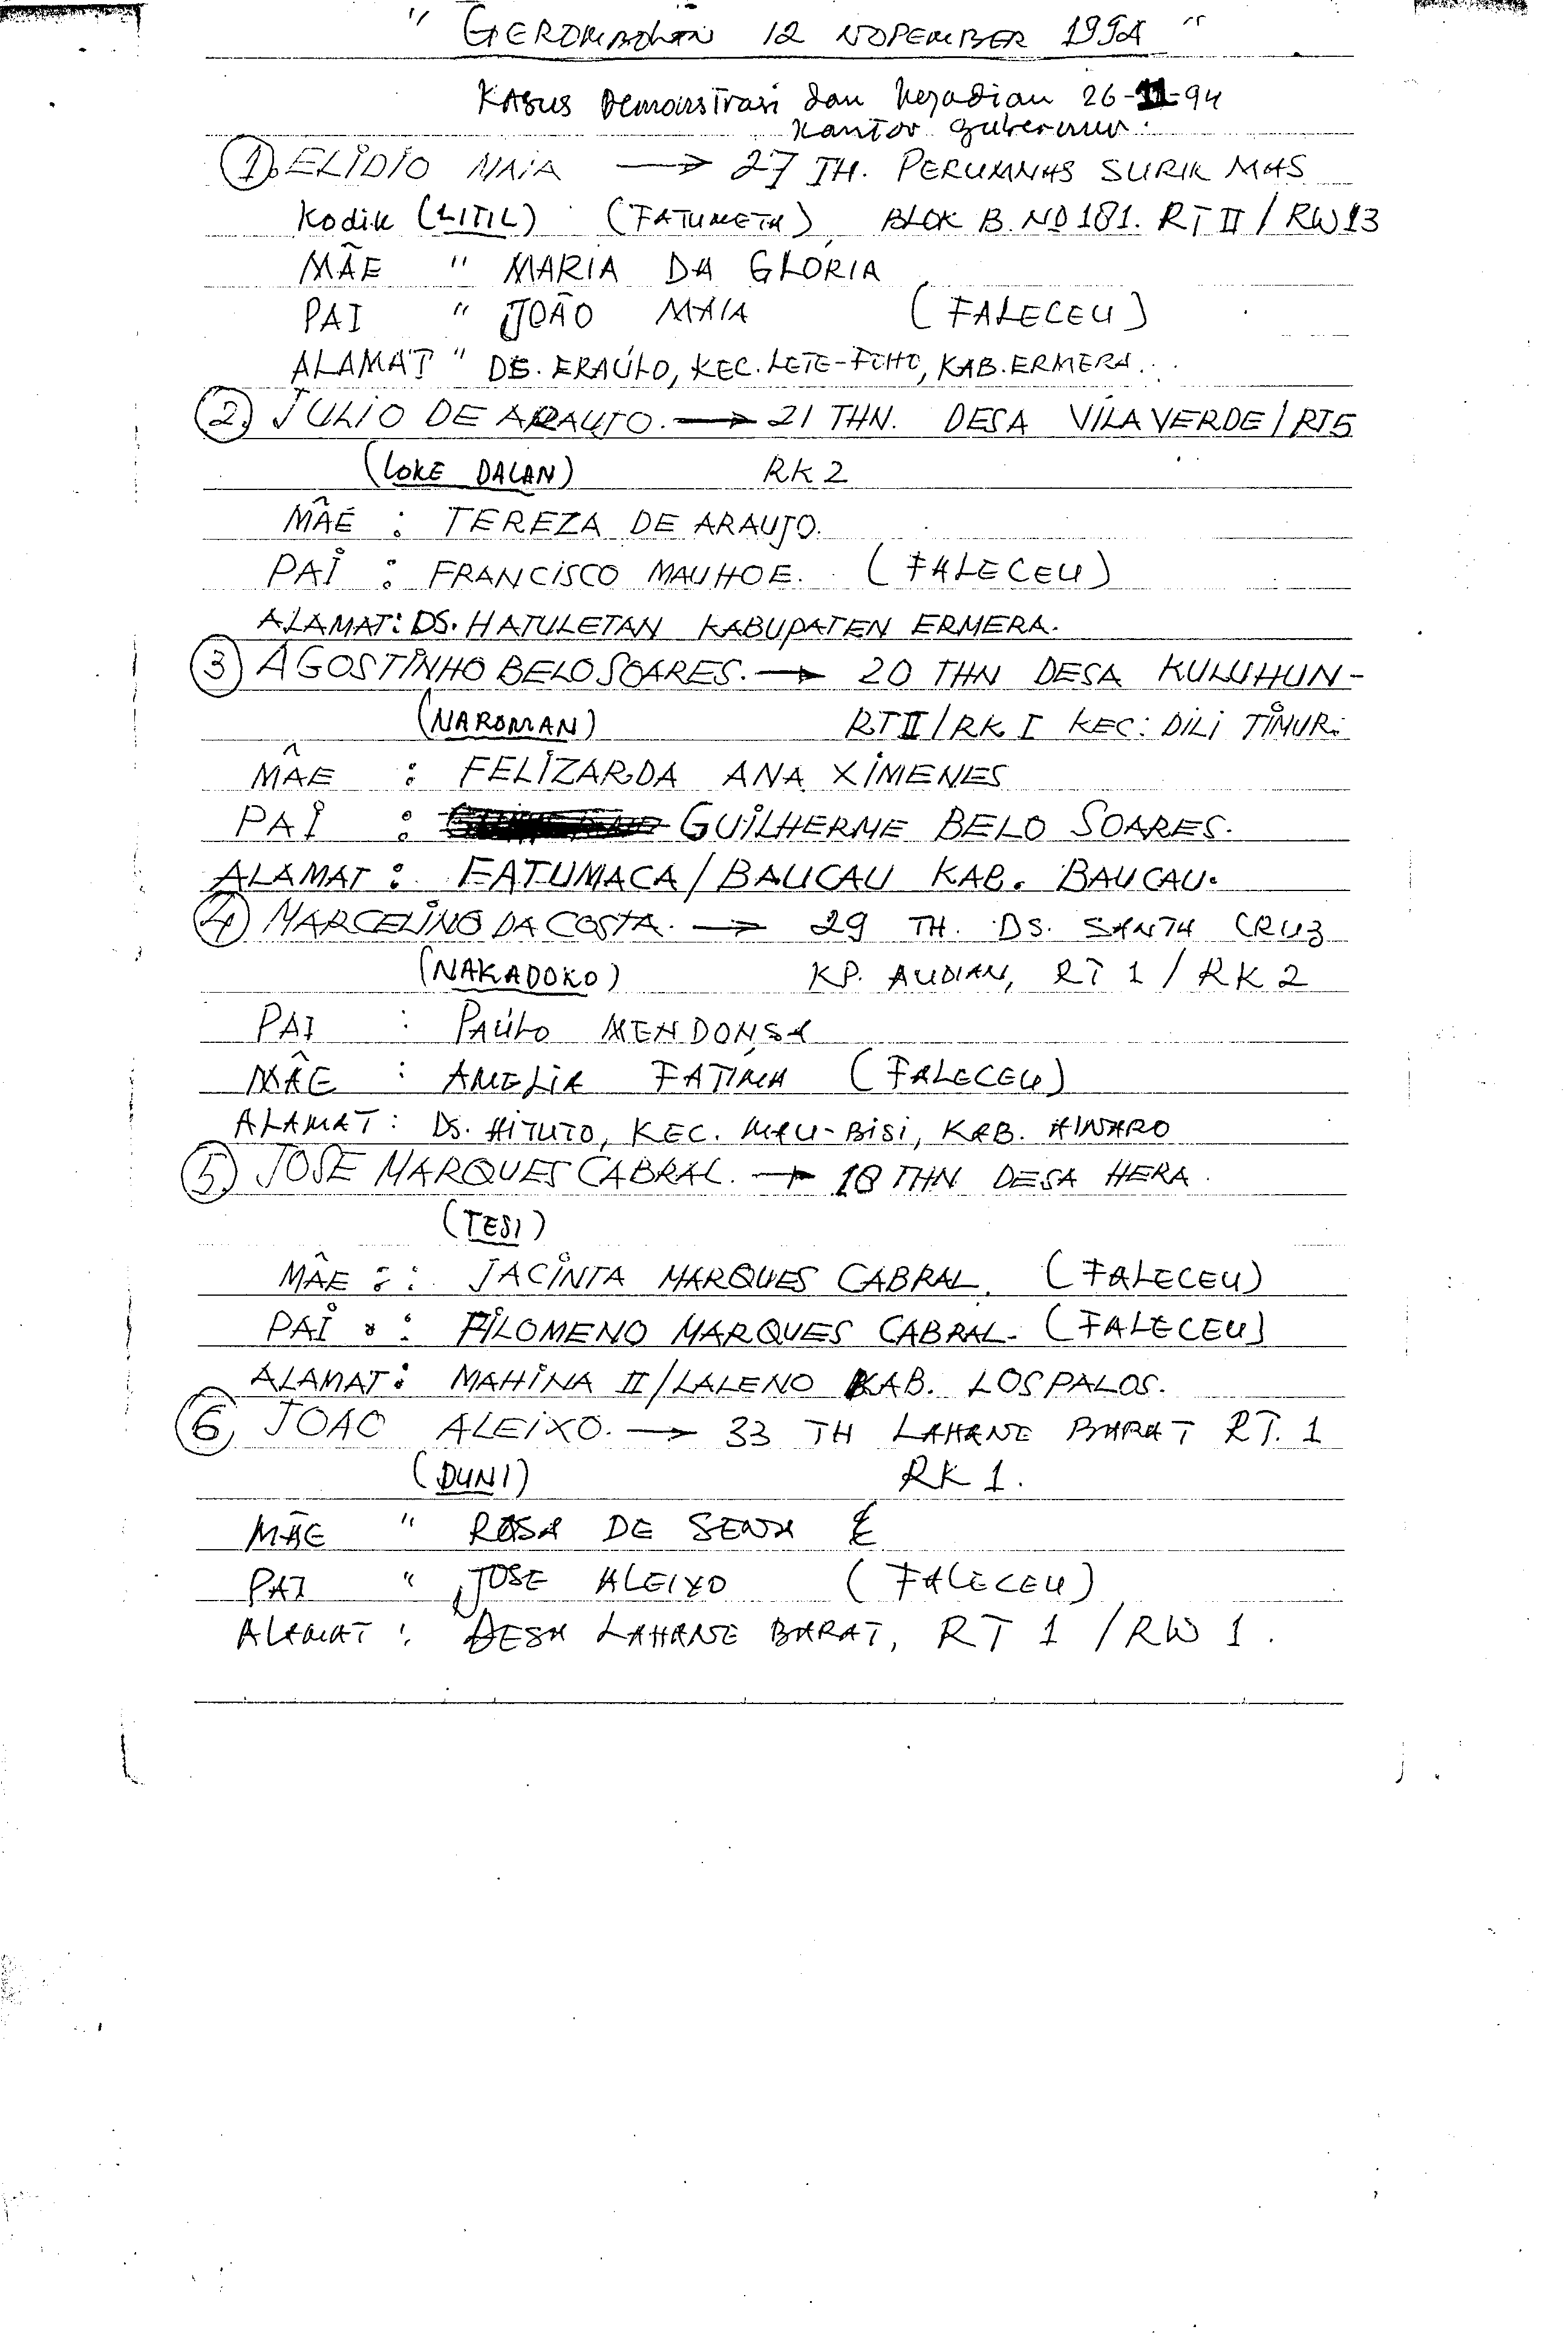 " GEROMBOLAN 12 NOPEMBER 1994 "
Kasus Demonstrasi dan kejadian 26-11-94
kantor gubernur.
1. ELIDIO MAIA → 27 TH. PERUMNAS SURIK MAS
Kodik (LITIL) (FATUMETA), BLOK B. NO 181. RT II / RW 13
MÃE " MARIA DA GLORIA
PAI " JOÃO MAIA (FALECEU)
ALAMAT " DS. ERAÚLO, KEC. LETE-FOHO, KAB. ERMERA.
2. JULIO DE ARAUJO. → 21 THN. DESA VILA VERDE / RT5
(LOKE DALAN) RK 2
MÂE : TEREZA DE ARAUJO.
PAI : FRANCISCO MAUHOE. (FALECEU)
ALAMAT: DS. HATULETAN KABUPATEN ERMERA.
3 AGOSTINHO BELO SOARES. → 20 THN DESA KULUHUN-
(NAROMAN) RT II / RK I KEC: DILI TIMUR.
MÂE : FELIZARDA ANA XIMENES
PAI : GUILHERME BELO SOARES.
ALAMAT : FATUMACA / BAUCAU KAB. BAUCAU.
4) MARCELINO DA COSTA. → 29 TH. DS. SANTA CRUZ
(NAKADOKO) KP. AUDIAN, RT 1 / RK 2
PAI : PAÚLO MENDONSA
MÂE : AMELIA FATIMA (FALECEU)
ALAMAT: DS. AITUTO, KEC. MAU-BISI, KAB. AINARO
5. JOSE MARQUES CABRAL. → 18 THN DESA HERA.
(TESI)
MÂE : : JACINTA MARQUES CABRAL. (FALECEU)
PAI : FILOMENO MARQUES CABRAL. (FALECEU)
ALAMAT: MAHINA II / LALENO KAB. LOSPALOS.
6. JOAO ALEIXO. → 33 TH LAHANE BARAT RT. 1
(DUNI) RK 1.
MÃE " ROSA DE SENA
PAI " JOSE ALEIXO (FALECEU)
ALAMAT : DESA LAHANE BARAT, RT 1 / RW 1.